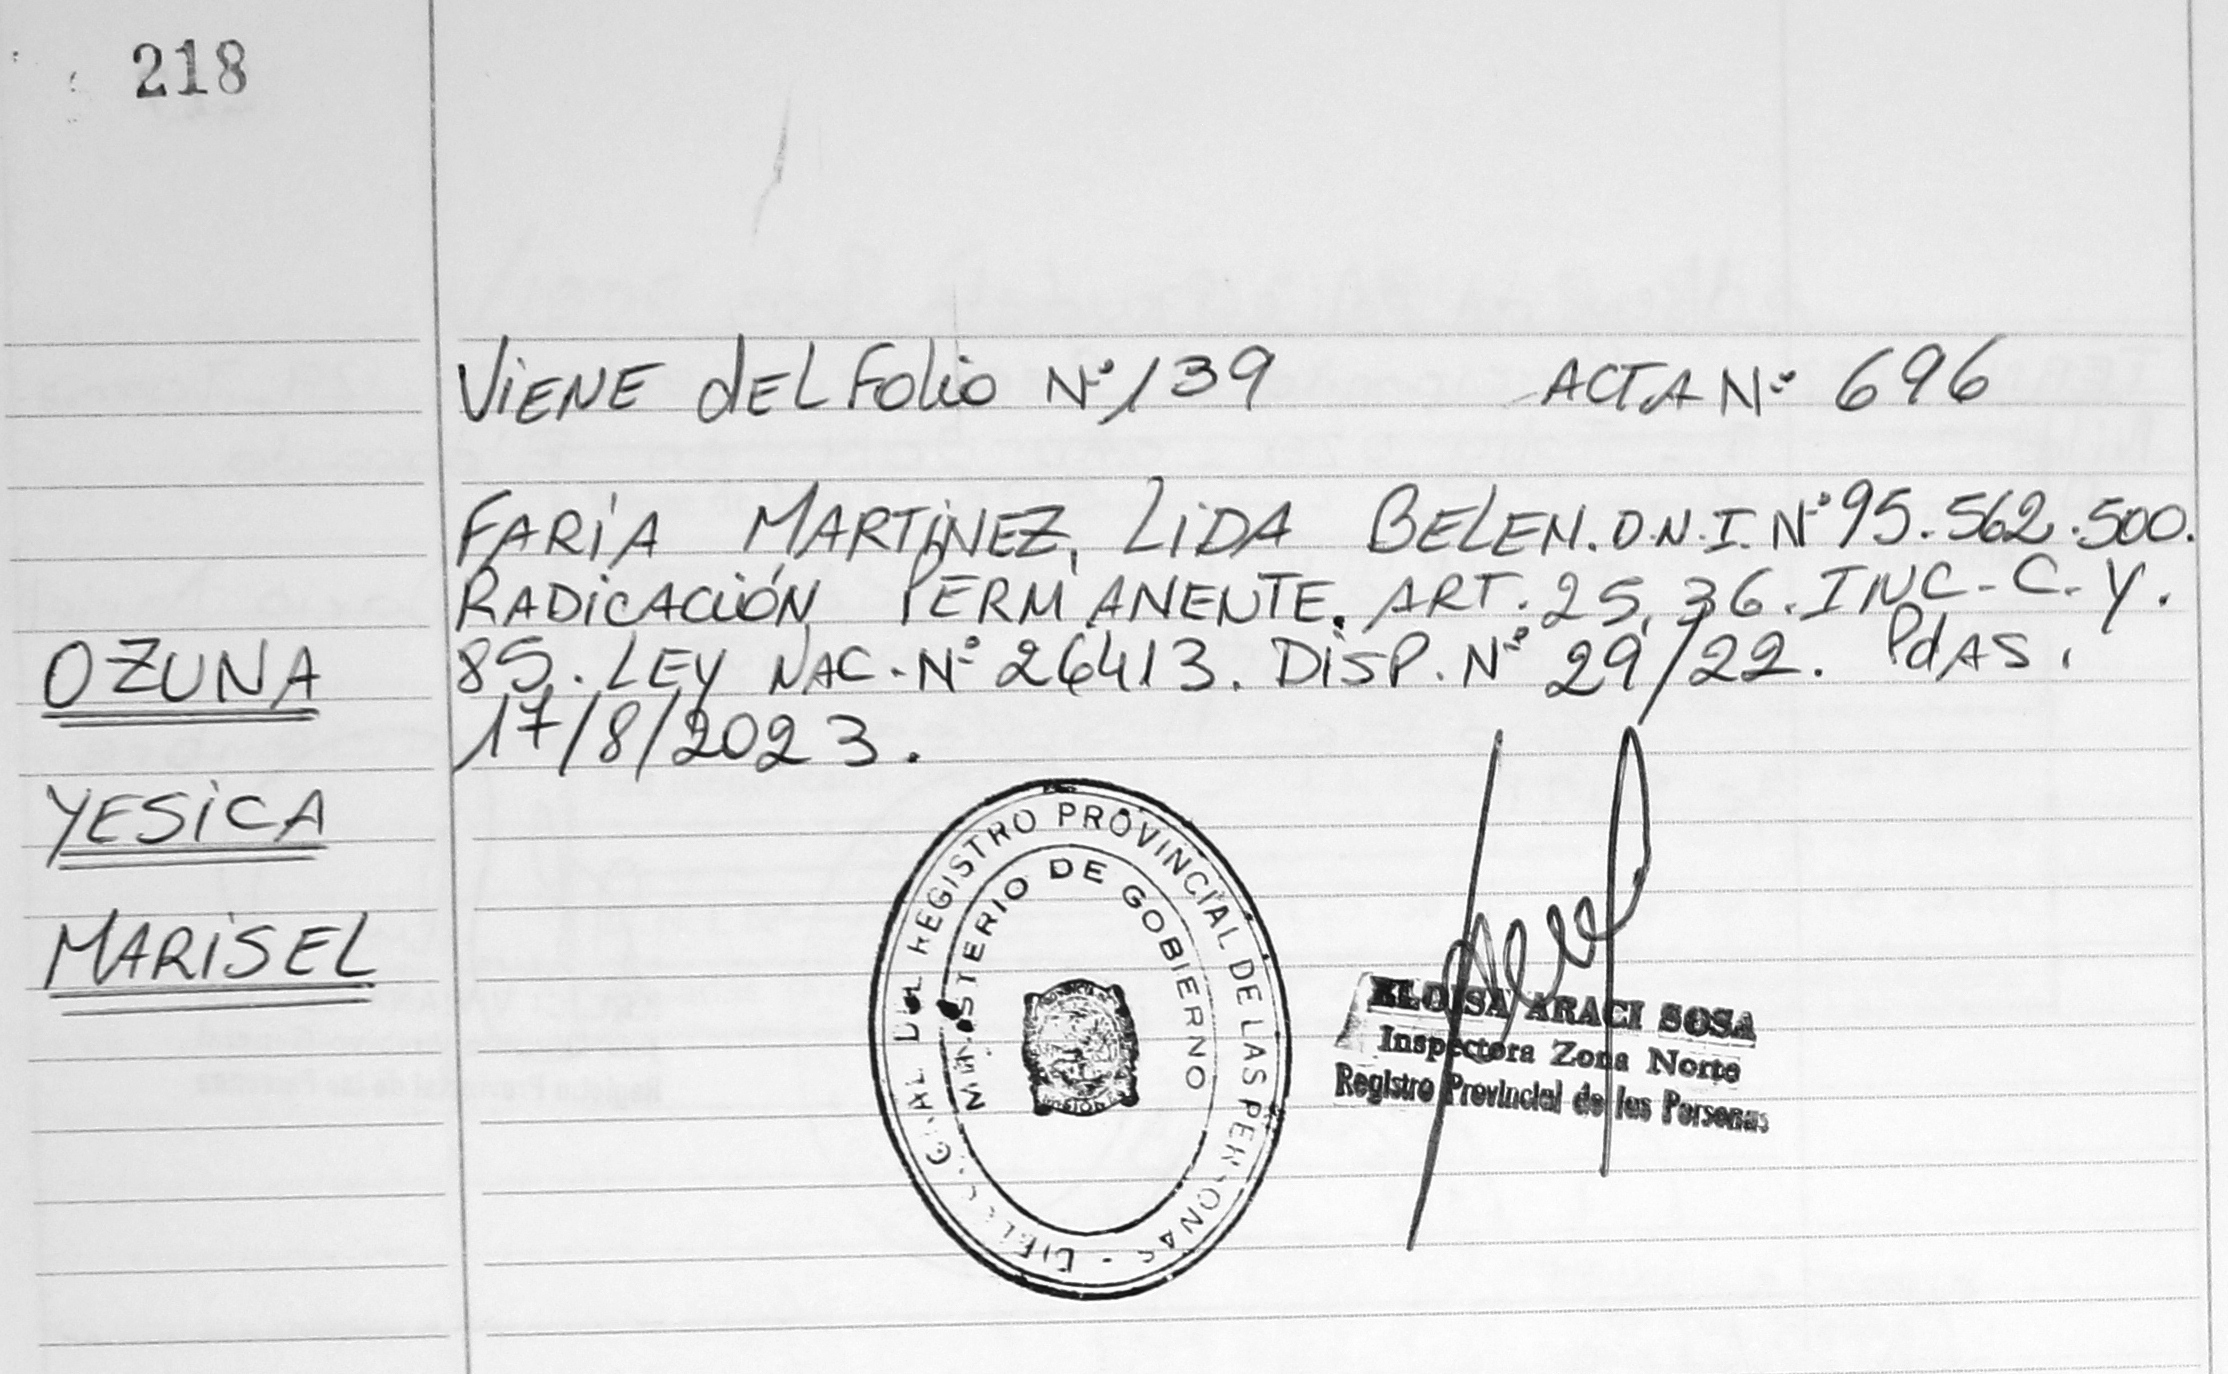 218
VIENE dEL Folio Nº 139 ACTA Nº 696
FARIA MARTINEZ, LIDA BELEN. D.N.I. Nº 95.562.500.
RADICACIÓN PERMANENTE. ART. 25, 36. INC-C-Y.
85. LEY NAC. Nº 26413. DISP. Nº 29/22. PdAS,
17/8/2023.
OZUNA
YESICA
MARISEL
GRAL DEL REGISTRO PROVINCIAL DE LAS PERSONAS -
MINISTERIO DE GOBIERNO
ELOISA ARACI SOSA
Inspectora Zona Norte
Registro Provincial de las Personas